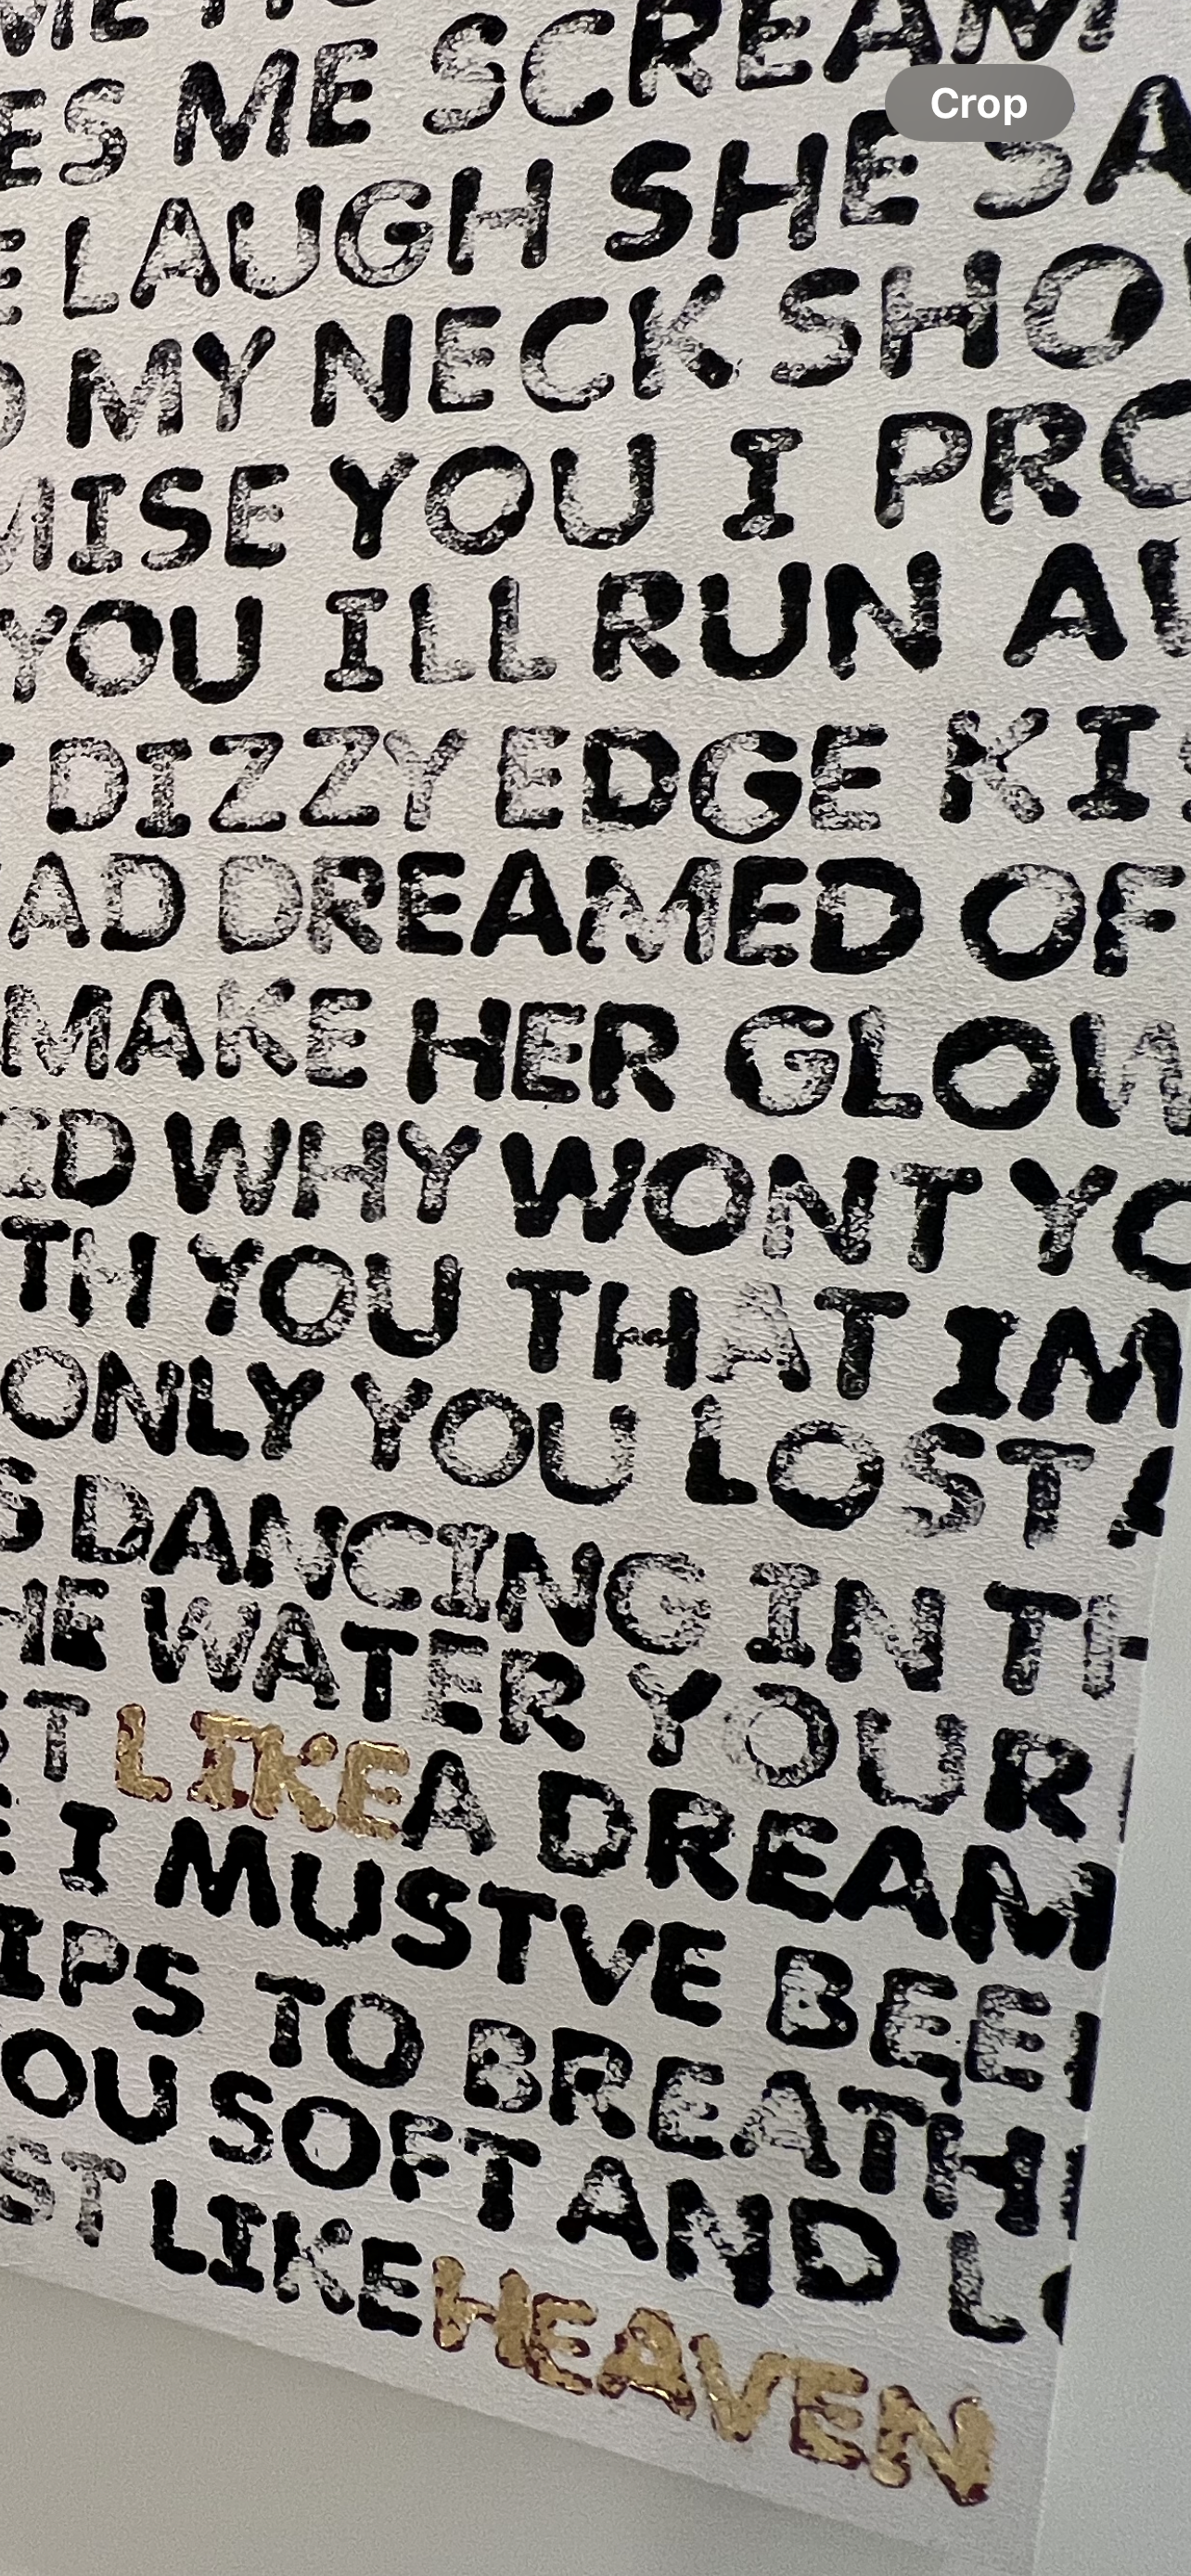 ME
ES ME SCREAM
Crop
E LAUGH SHE SA
D MY NECK SHO
MISE YOU I PRO
YOU ILL RUN AW
T DIZZY EDGE KIS
AD DREAMED OF
MAKE HER GLOW
ID WHY WONT YO
TH YOU THAT IM
ONLY YOU LOST A
S DANCING IN TH
HE WATER YOUR
ST LIKE A DREAM
E I MUSTVE BEE
IPS TO BREATH
OU SOFT AND L
ST LIKE HEAVEN